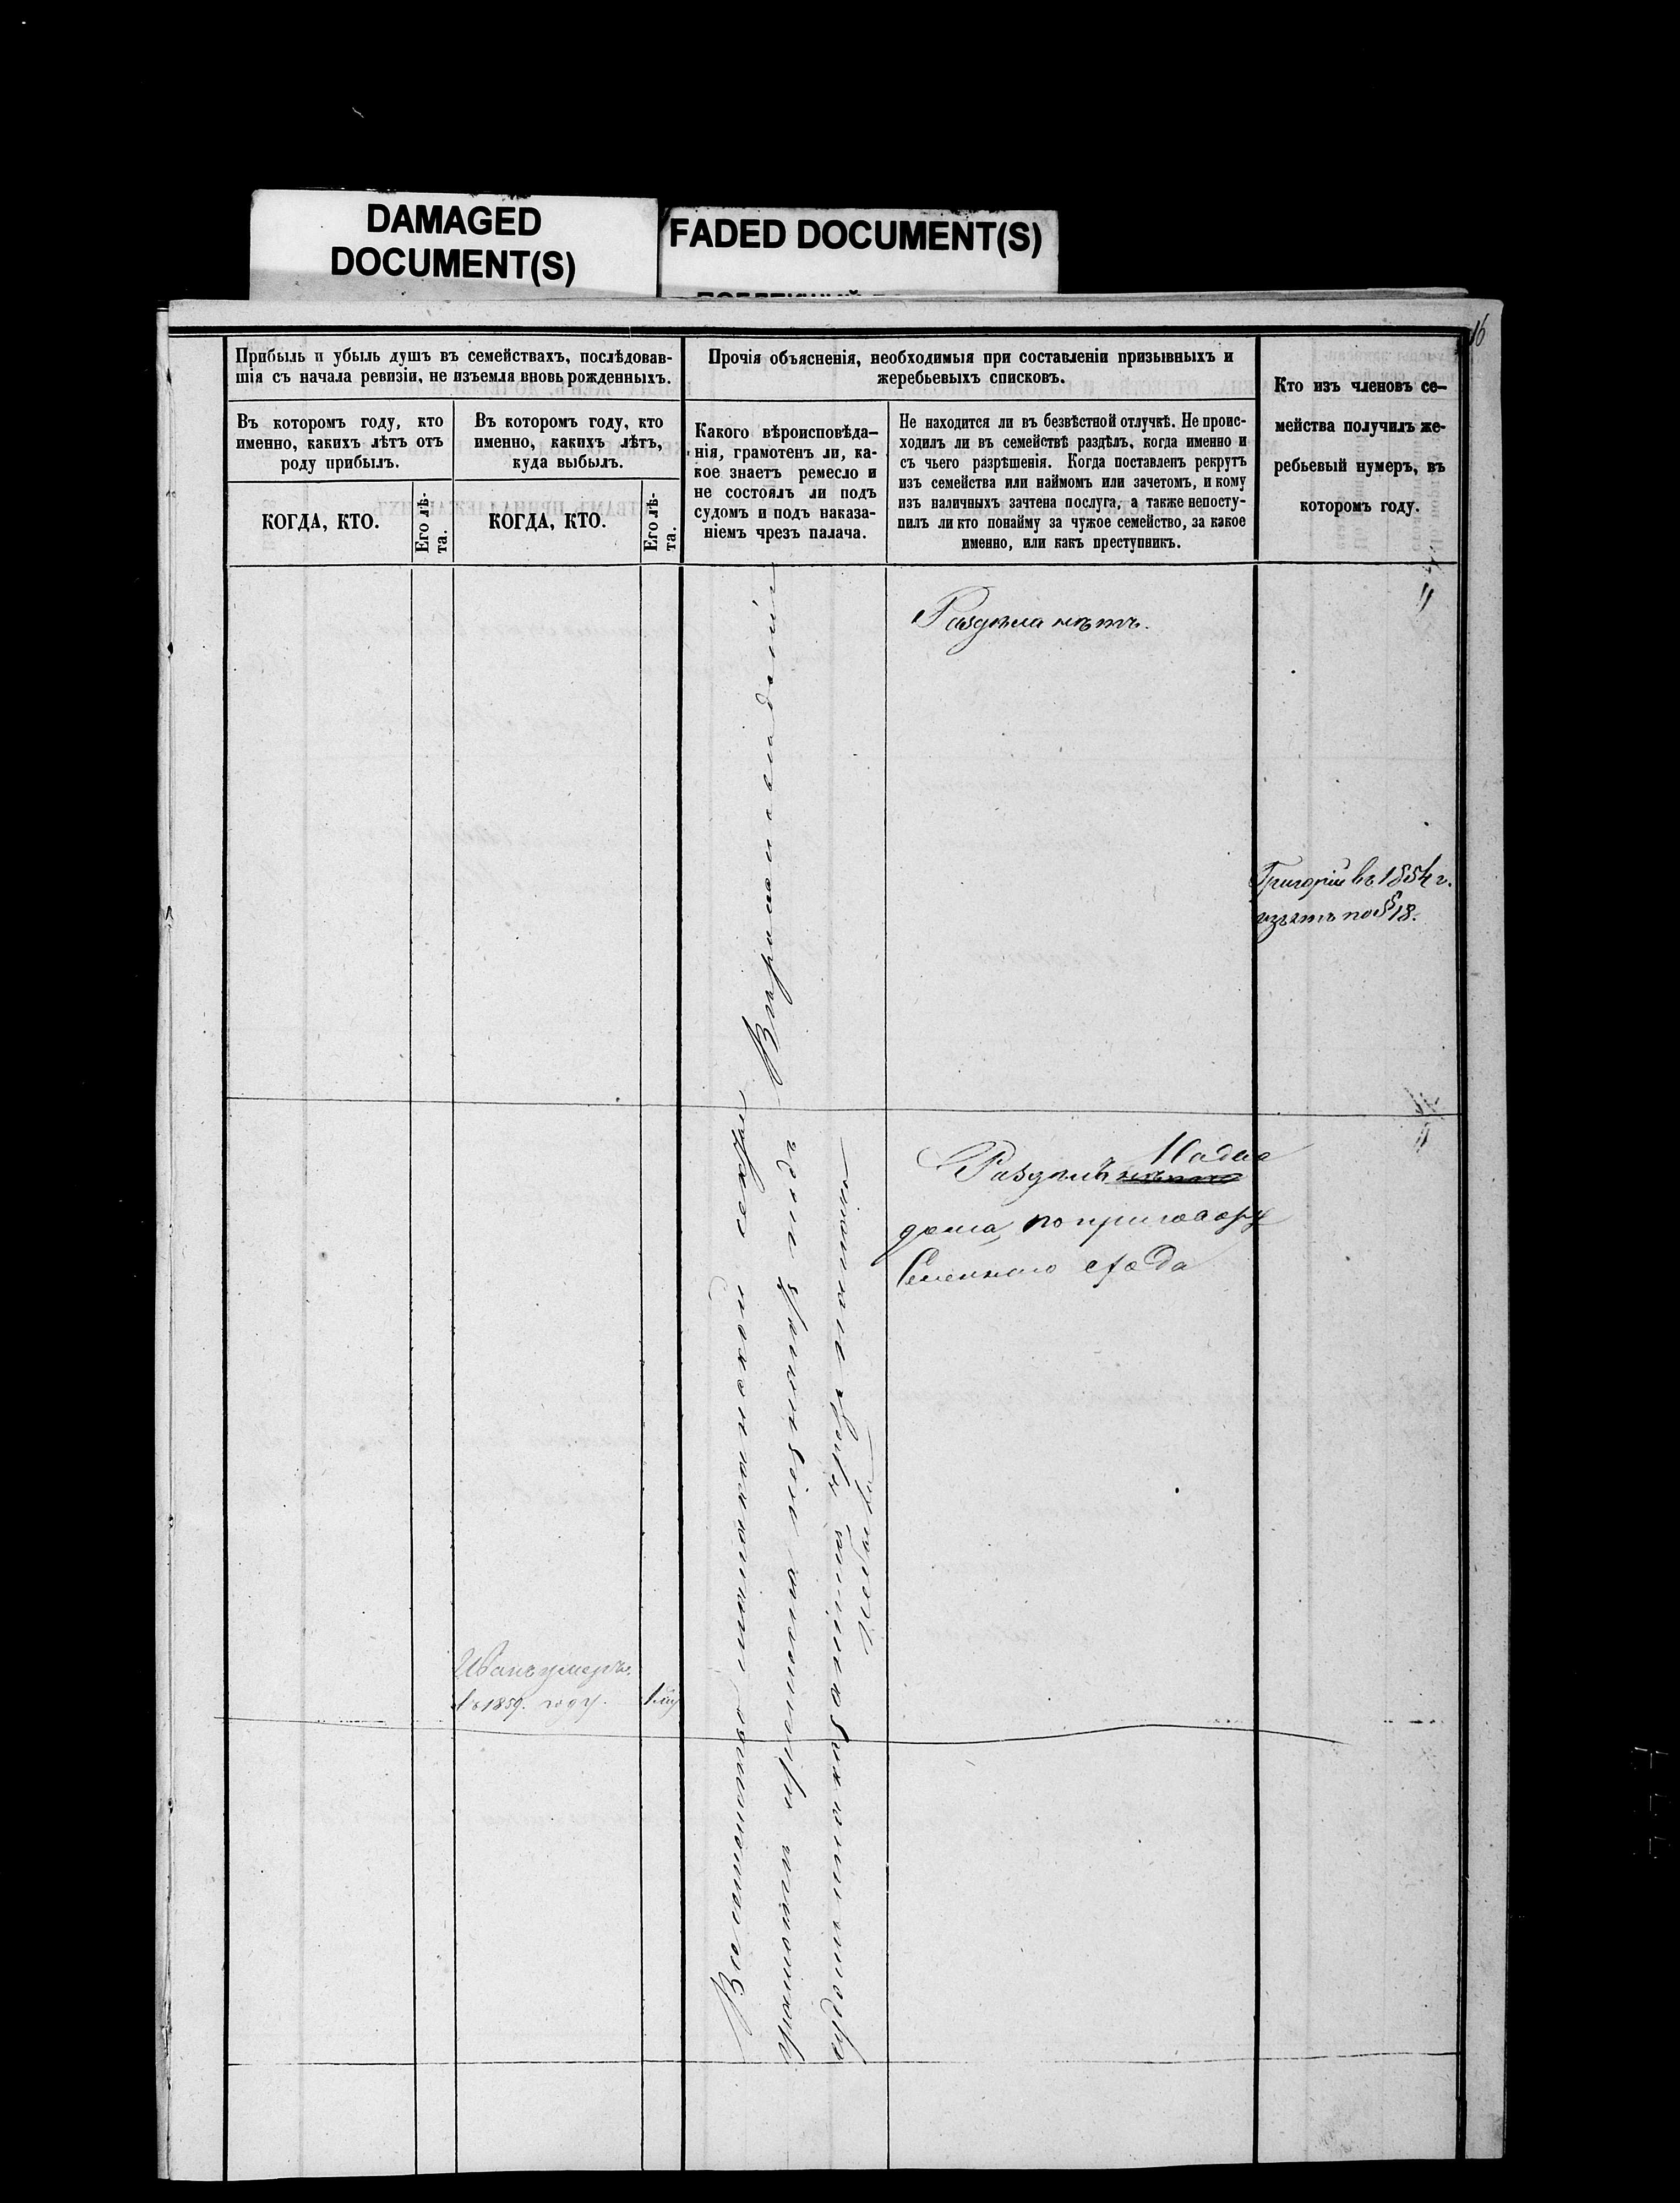 DAMAGED
DOCUMENT(S)
FADED DOCUMENT(S)
16
Прибыль и убыль душъ въ семействахъ, послѣдовав-
шія съ начала ревизіи, не изъемля вновь рожденныхъ.
Въ котοромъ году, кто
именно, какихъ лѣтъ отъ
роду прибылъ.
КОГДА, КТО.
Его лѣ-
та.
Въ котοромъ году, кто
именно, какихъ лѣтъ,
куда выбылъ.
КОГДА, КТО.
Его лѣ-
та.
Прочія объясненія, необходимыя при составленіи призывныхъ и
жеребьевыхъ списковъ.
Какого вѣроисповѣда-
нія, грамотенъ ли, ка-
кое знаетъ ремесло и
не состоялъ ли подъ
судомъ и подъ наказа-
ніемъ чрезъ палача.
Не находится ли въ безвѣстной отлучкѣ. Не проис-
ходилъ ли въ семействѣ раздѣлъ, когда именно и
съ чьего разрѣшенія. Когда поставленъ рекрутъ
изъ семейства или наймомъ или зачетомъ, и кому
изъ наличныхъ зачтена послуга, а также непосту-
пилъ ли кто понайму за чужое семейство, за какое
именно, или какъ преступникъ.
Кто изъ членовъ се-
мейства получилъ же-
ребьевый нумеръ, въ
которомъ году.
Раздѣла нѣтъ.
Григорій въ 1854 г.
изъятъ по § 18.
Раздѣлъ нѣтъ
дома, по приговору
схода
Иванъ умеръ
въ 1859. году.
1
Вѣроисповѣданія
секты
грамоты
подъ
судомъ и наказаніемъ чрезъ палача
небыли